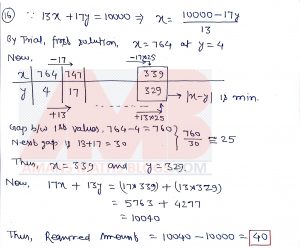 (16) ∵ 13x + 17y = 10000 ⇒ x = (10000 - 17y)/13
By Trial, first solution, x = 764 at y = 4
Now, -17 -17×25
x | 764 | 747 339
y | 4 | 17 329 → |x-y| is min.
+13 +13×25
Gap b/w 1st values, 764-4 = 760 } 760/30 ≅ 25
Next gap is 13+17 = 30
Thus, x = 339 and y = 329.
Now, 17x + 13y = (17×339) + (13×329)
= 5763 + 4277
= 10040
Thus, Required Amount = 10040 - 10000 = 40